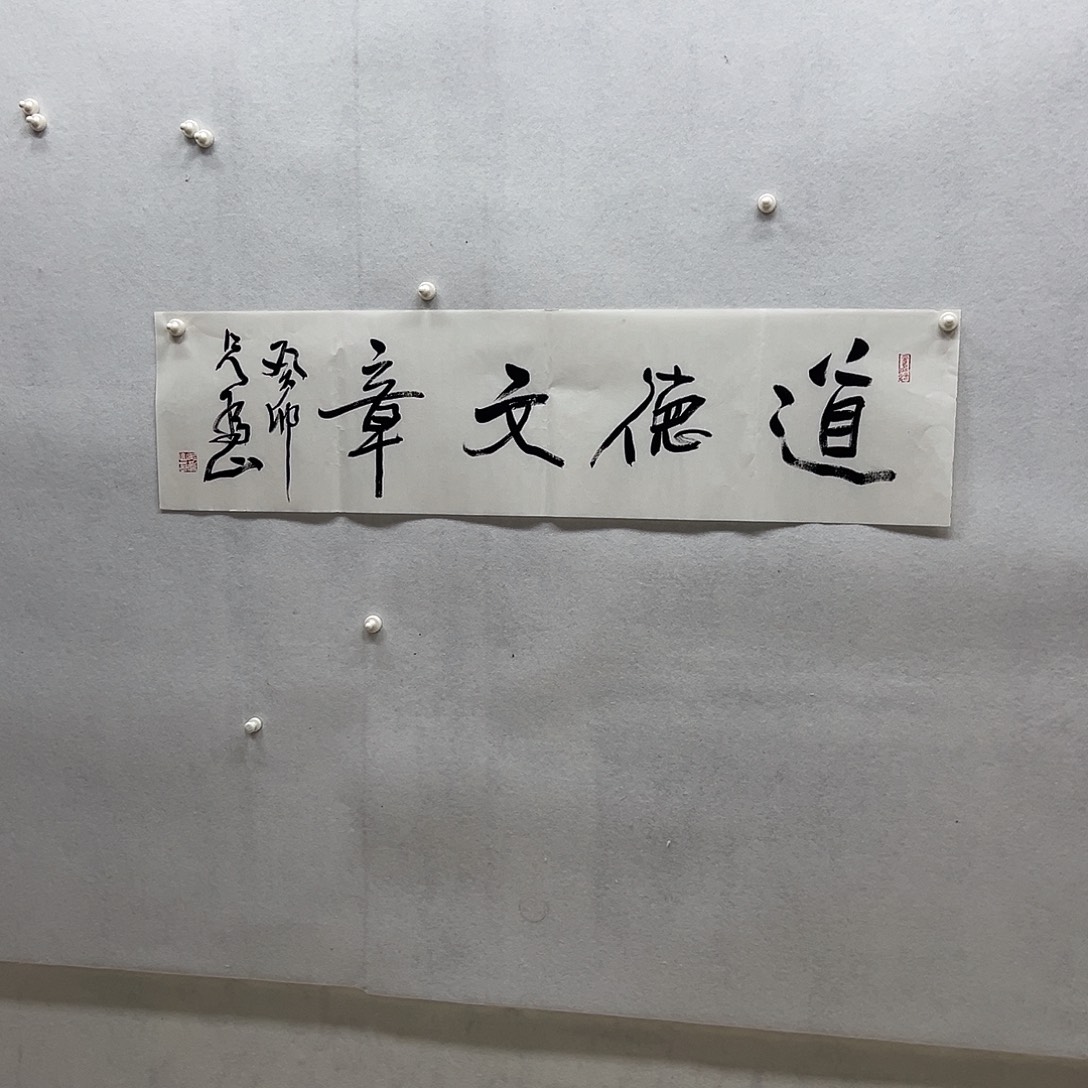 道德文章
癸卯